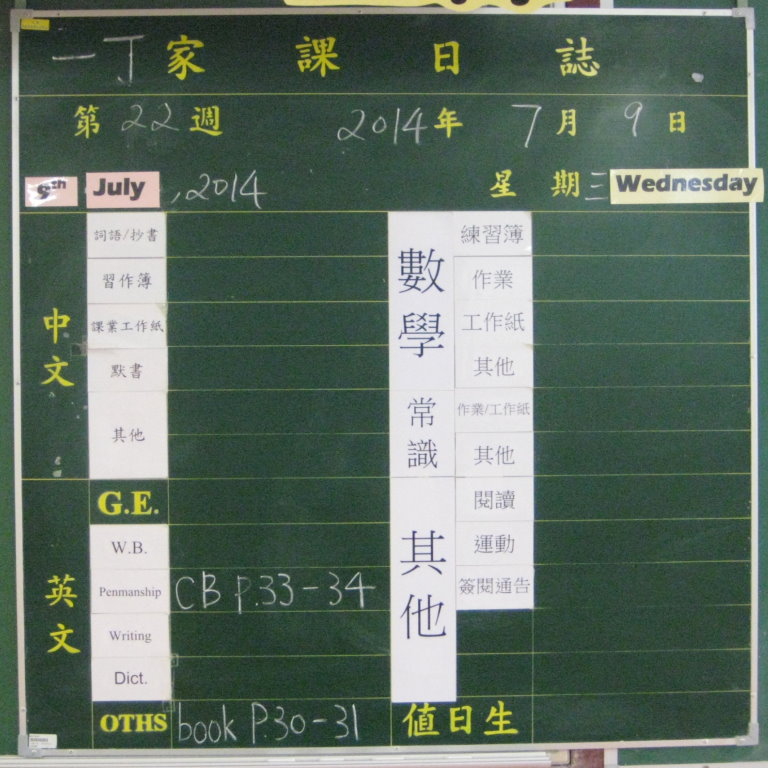 一丁家課日誌
第22週 2014年7月9日
9th July ,2014 星期三 Wednesday
中文
詞語/抄書
習作簿
課業工作紙
默書
其他
英文
G.E.
W.B.
Penmanship CB P.33-34
Writing
Dict.
OTHS book P.30-31
數學
練習簿
作業
工作紙
其他
常識
作業/工作紙
其他
其他
閱讀
運動
簽閱通告
值日生